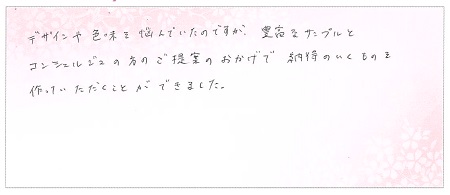 デザインや色味を悩んでいたのですが、豊富なサンプルと
コンシェルジュの方のご提案のおかげで納得のいくものを
作っていただくことができました。